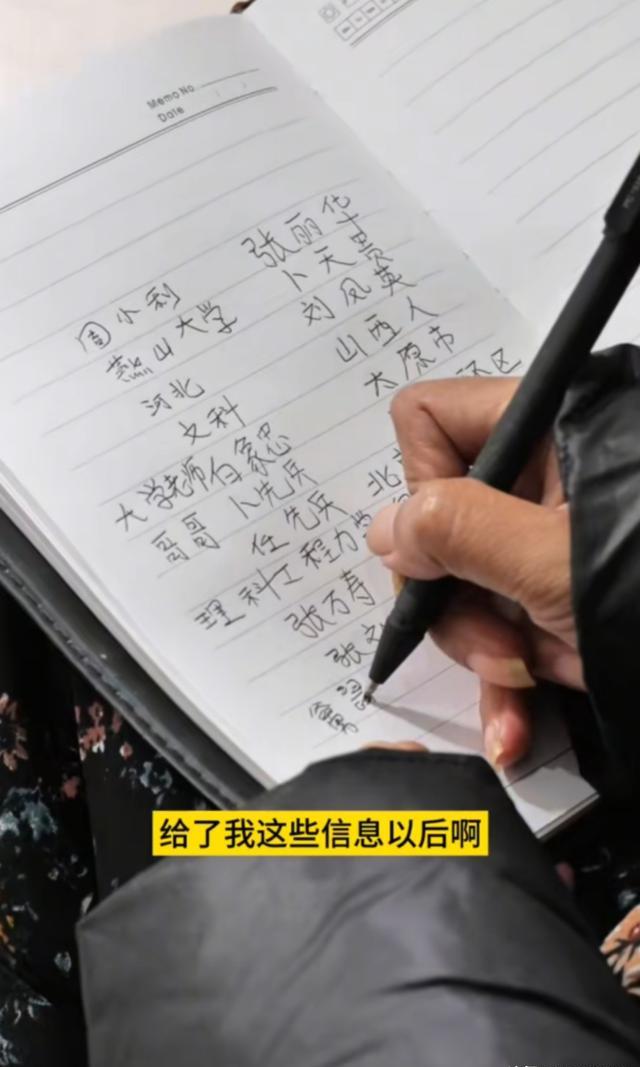 Memo No.
Date ( )
周小利
燕山大学
河北
文科
大学老师白象忠
哥哥 卜先兵
任先兵
理科工程力学
张万寿
张文
张丽华
卜天贵
刘凤英
山西人
太原市
区
北
给了我这些信息以后啊